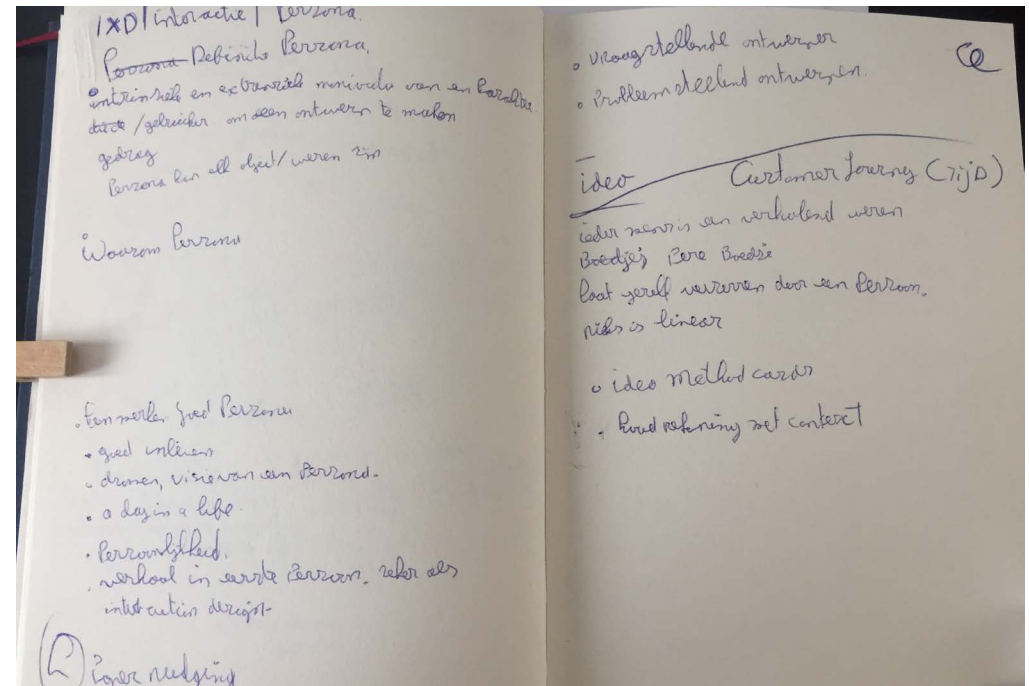 IXD/interactie/Persona.
Persona Definitie Persona.
intrinsiek en extrensiek van een
/gebruiker om een ontwerp te maken
gedrag
Persona kan elk object/wezen zijn
Waarom Persona
Kenmerken goed Persona
goed inleven
dromen, visie van een Persona.
a day in a life.
Persoonlijkheid.
verhaal in eerste Persoon. zeker als
interaction designer
nudging
vraagstellende ontwerper
Probleemstellend ontwerpen.
ideo Customer Journey (TijD)
ieder mens is een verhalend wezen
Boedje's
laat jezelf verrassen door een Persoon.
niks is linear
ideo method cards
houd rekening met context